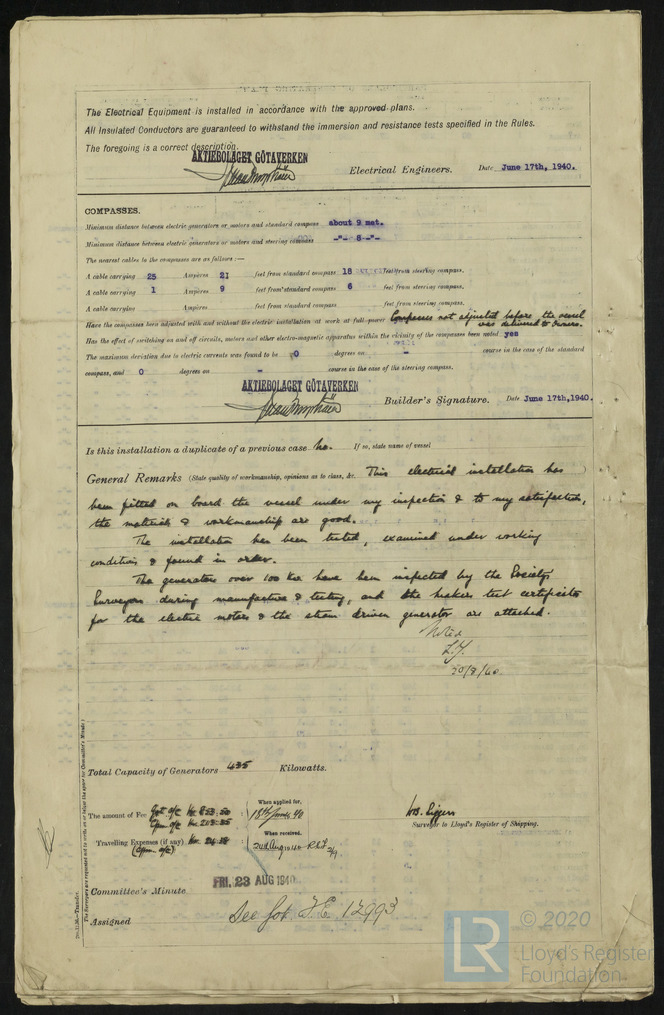 The Electrical Equipment is installed in accordance with the approved plans.
All Insulated Conductors are guaranteed to withstand the immersion and resistance tests specified in the Rules.
The foregoing is a correct description.
AKTIEBOLAGET GÖTAVERKEN
Electrical Engineers. Date June 17th, 1940.
COMPASSES.
Minimum distance between electric generators or motors and standard compass about 9 met.
Minimum distance between electric generators or motors and steering compass -"- 8 -"-
The nearest cables to the compasses are as follows:—
A cable carrying 25 Ampères 21 feet from standard compass 18 feet from steering compass.
A cable carrying 1 Ampères 9 feet from standard compass 6 feet from steering compass.
A cable carrying Ampères feet from standard compass feet from steering compass.
Have the compasses been adjusted with and without the electric installation at work at full power Compasses not adjusted before the vessel was delivered to Owners.
Has the effect of switching on and off circuits, motors and other electro-magnetic apparatus within the vicinity of the compasses been noted yes
The maximum deviation due to electric currents was found to be 0 degrees on - course in the case of the standard
compass, and 0 degrees on - course in the case of the steering compass.
AKTIEBOLAGET GÖTAVERKEN
Builder's Signature. Date June 17th, 1940.
Is this installation a duplicate of a previous case No. If so, state name of vessel
General Remarks (State quality of workmanship, opinions as to class, &c. This electrical installation has
been fitted on board the vessel under my inspection & to my satisfaction,
the materials & workmanship are good.
The installation has been tested, examined under working
conditions & found in order.
The generators over 100 Kw have been inspected by the Society's
Surveyors during manufacture & testing, and the makers test certificates
for the electric motors & the steam driven generator are attached.
Noted
20/8/40
Total Capacity of Generators 435 Kilowatts.
The amount of Fee
When applied for,
18th June 40
Travelling Expenses (if any)
When received,
Surveyor to Lloyd's Register of Shipping.
Committee's Minute FRI. 23 AUG 1940
Assigned See Got. F.E. 12993
(The Surveyors are requested not to write on or below the space for Committee's Minute.)
LR © 2020
Lloyd's Register
Foundation